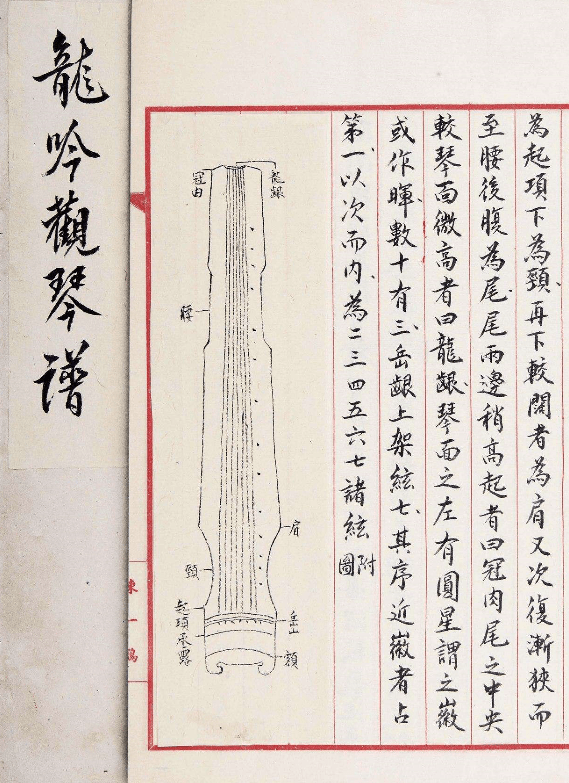 龍吟觀琴譜
為起項下為頸、再下較闊者為肩又次復漸狹而
至腰後腹為尾、尾兩邊稍高起者曰冠肉尾之中央
較琴面微高者曰龍齦、琴面之左有圓星謂之徽
或作暉、數十有三、岳齦上架絃七、其序近徽者占
第一、以次而內、為二三四五六七諸絃附圖
龍齦
冠由
腰
肩
頸
岳山
起項承露
額